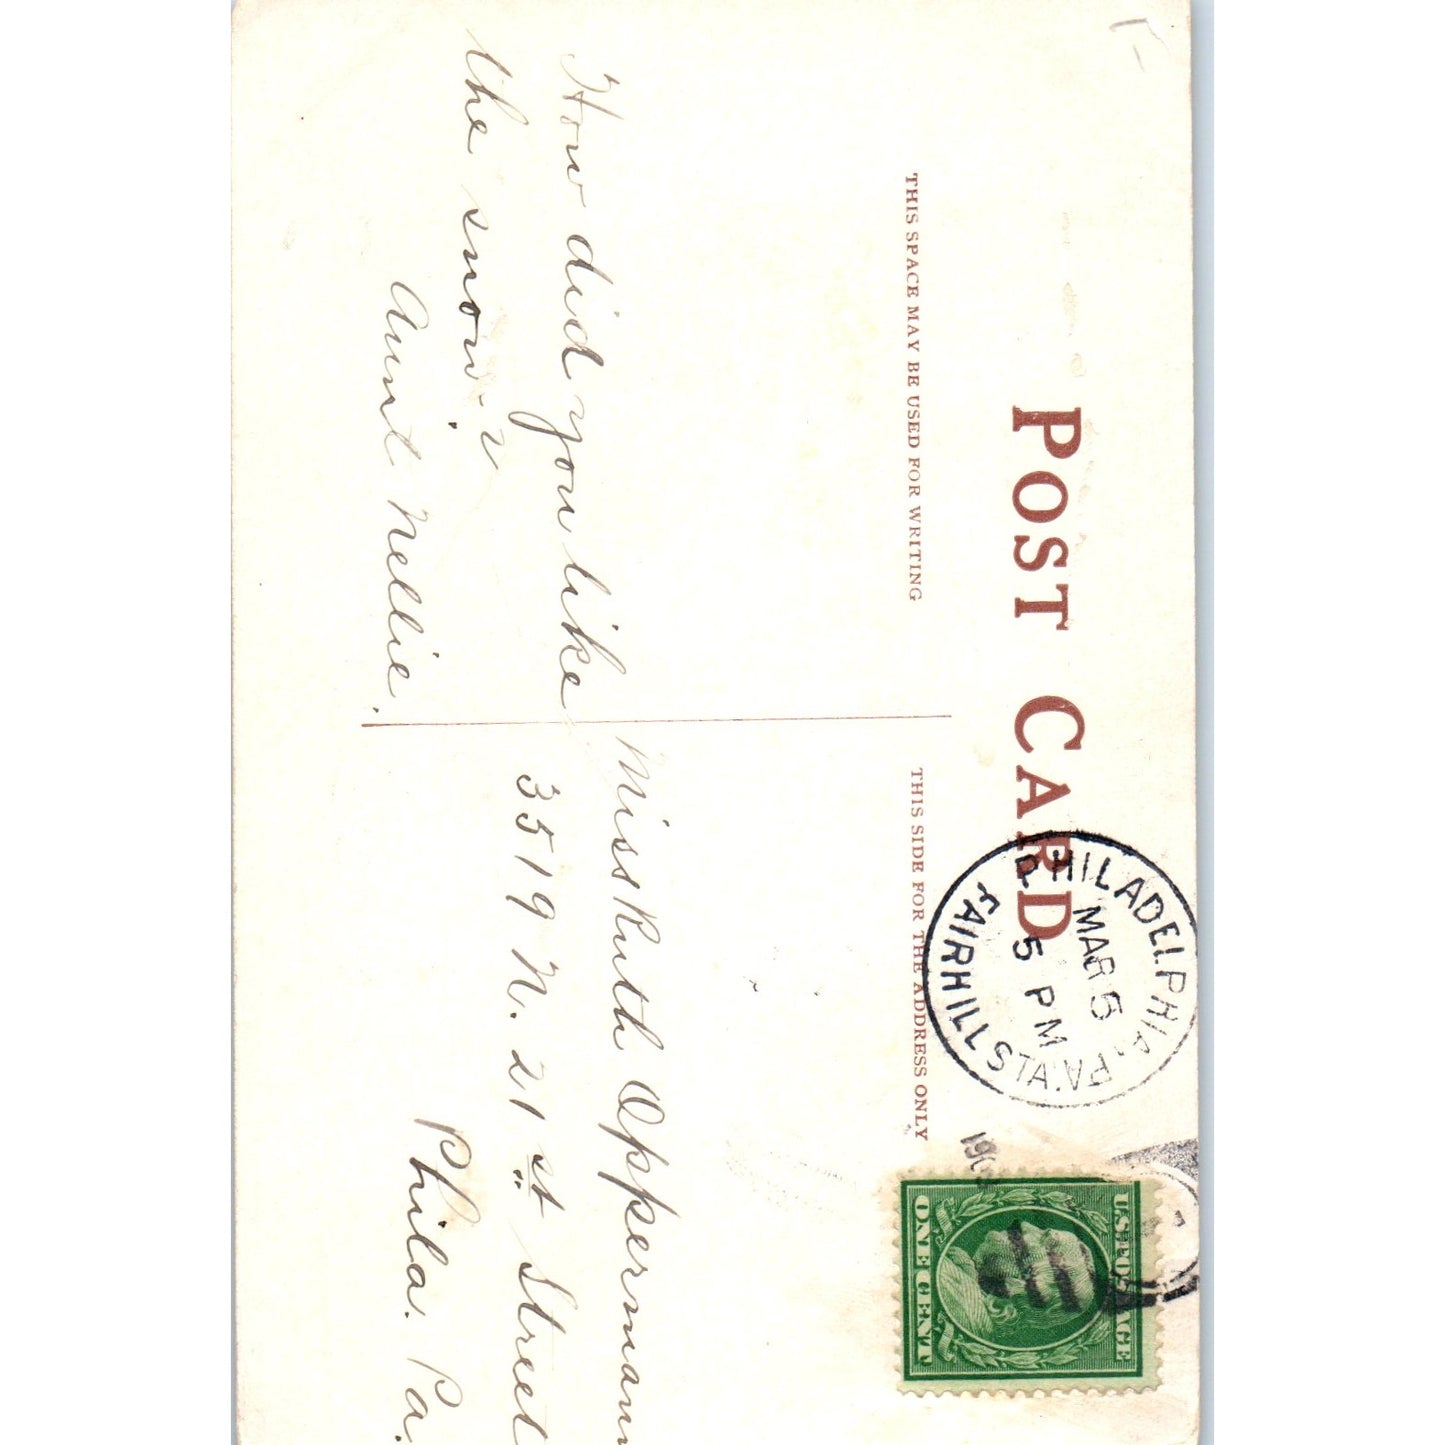 POST CARD
THIS SPACE MAY BE USED FOR WRITING
THIS SIDE FOR THE ADDRESS ONLY
PHILADELPHIA, PA.
MAR 5
5 PM
FAIRHILL STA.
U.S. POSTAGE
ONE CENT
How did you like
the snow.?
Aunt Nellie.
Miss Ruth Opperman
3519 N. 21st Street
Phila. Pa.